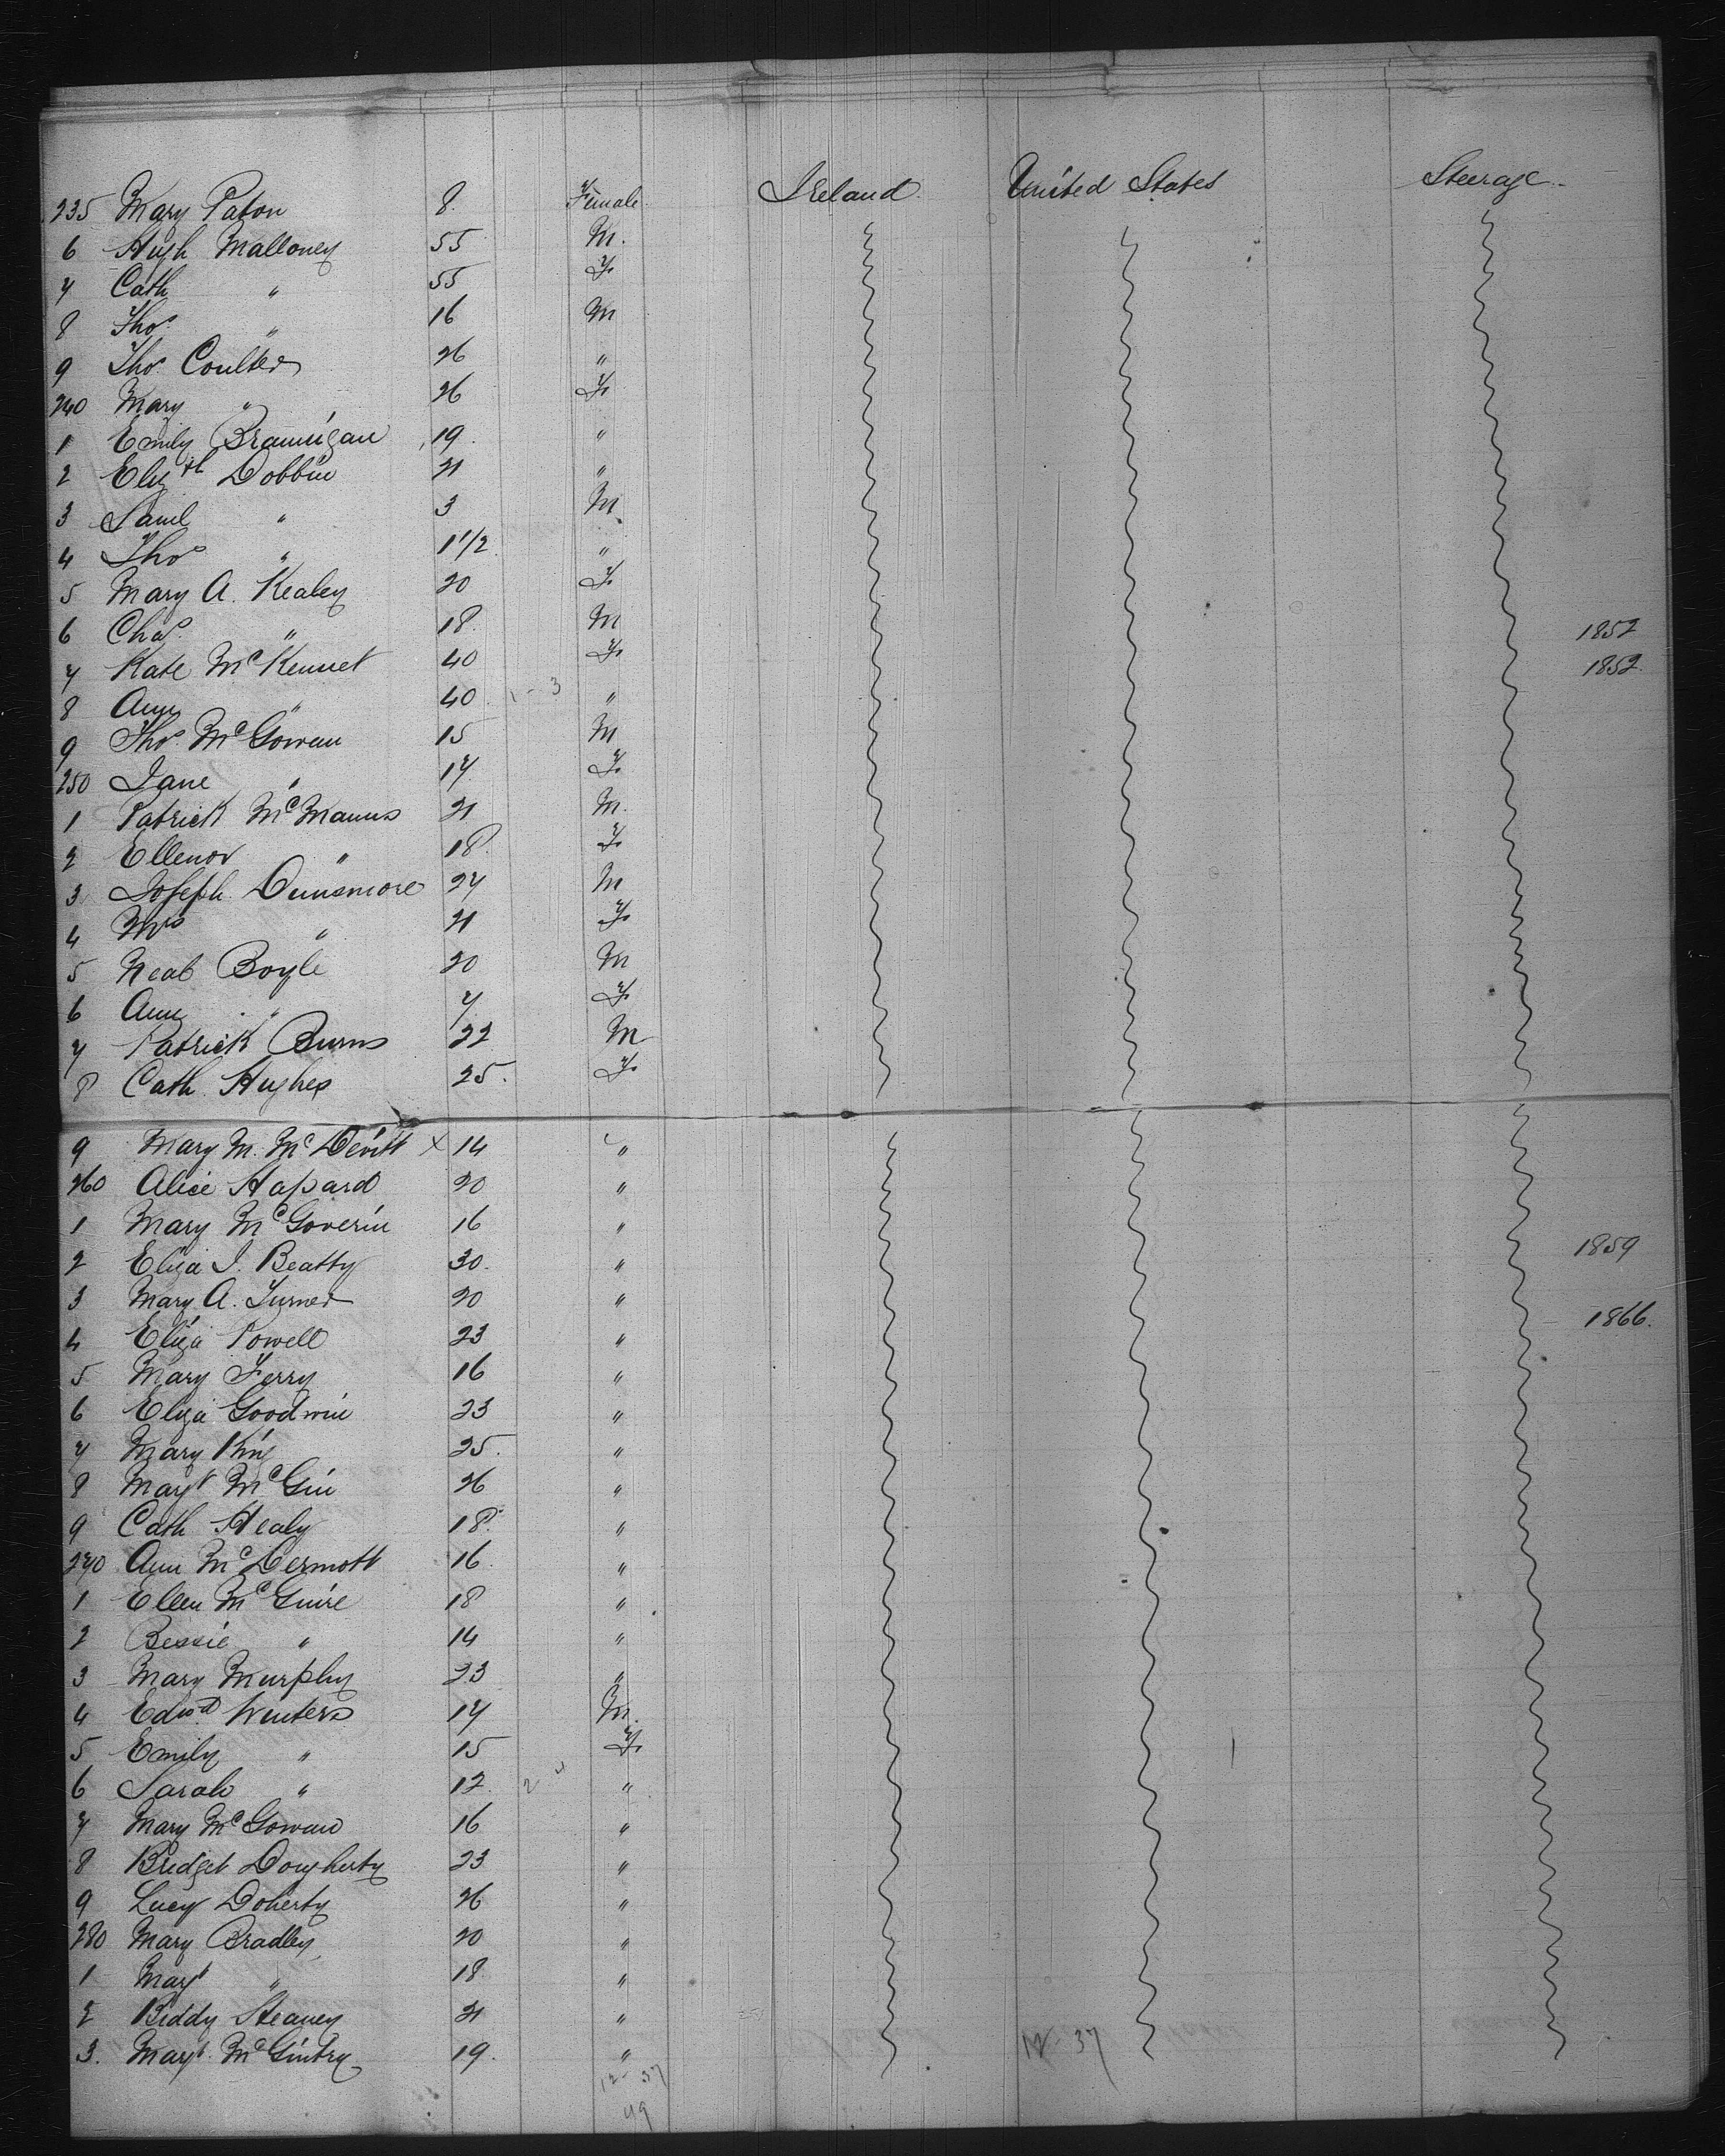 235 Mary Paton 8 Female Ireland United States Steerage
6 Hugh Malloney 55 M.
7 Cath " 55 F.
8 Thos " 16 M
9 Thos Coulter 26 "
240 Mary " 26 F.
1 Emily Brannigan 19 "
2 Elizth Dobbin 21 "
3 Saml " 3 M
4 Thos " 1 1/2 "
5 Mary A. Kealey 20 F.
6 Chas " 18 M 1852
7 Kate McKennet 40 F. 1852
8 Ann " 40 1-3 "
9 Thos McGowan 15 M
250 Jane " 17 F.
1 Patrick McManus 21 M.
2 Ellenor " 18 F.
3 Joseph Dunsmore 27 M
4 Mrs " 21 F.
5 Neal Boyle 20 M
6 Ann " 7 F.
7 Patrick Burns 22 M
8 Cath Hughes 25. F.
9 Mary M. McDevitt x 14 "
260 Alice Hapard 20 "
1 Mary McGoverin 16 "
2 Eliza J. Beatty 30. " 1859
3 Mary A. Turner 20 "
4 Eliza Powell 23 " 1866.
5 Mary Ferry 16 "
6 Eliza Goodwin 23 "
7 Mary King 25. "
8 Margt McGin 26 "
9 Cath Healy 18. "
270 Ann McDermott 16. "
1 Ellen McGuire 18 "
2 Bessie " 14 "
3 Mary Murphy 23 "
4 Edwd Winters 17 M.
5 Emily " 15 F.
6 Sarah " 12. "
7 Mary McGowan 16 "
8 Bridget Dougherty 23 "
9 Lucy Doherty 26 "
280 Mary Bradley 20 "
1 Margt " 18 "
2 Biddy Heaney 21 "
3. Margt McGintry 19. "
12-37 12-37
49